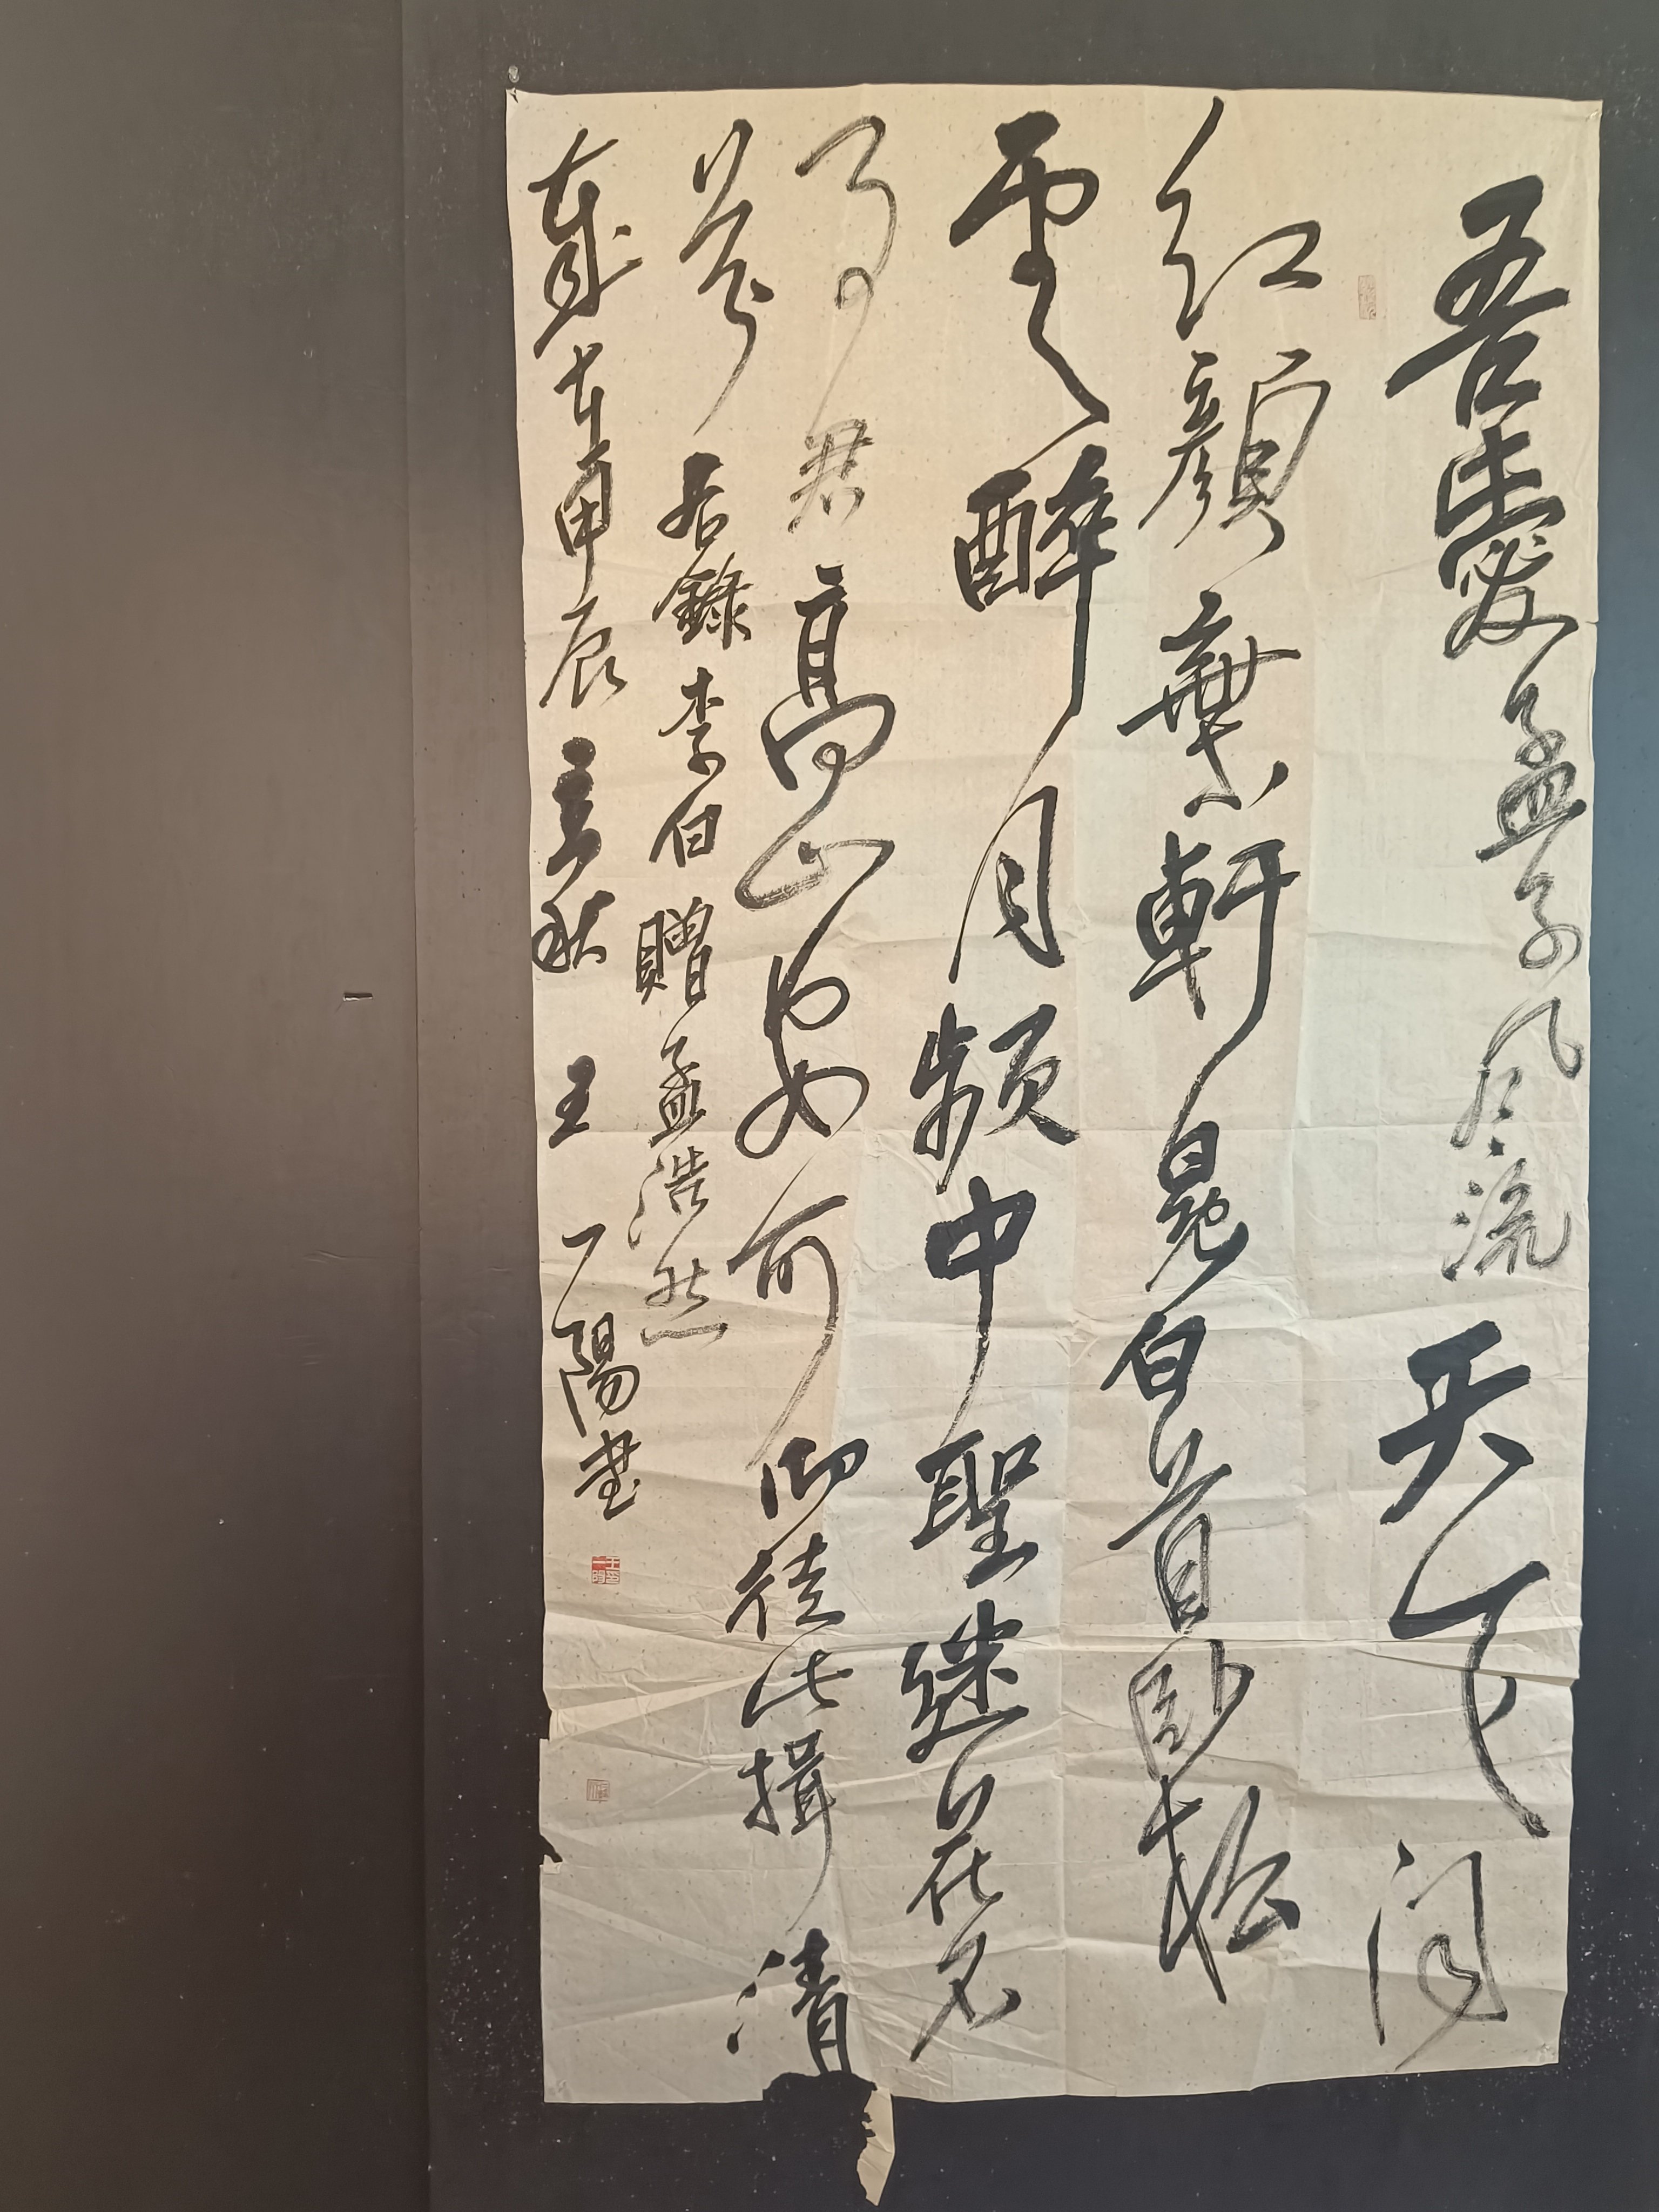 吾愛孟夫子風流天下聞
紅顏棄軒冕白首卧松
雲醉月頻中聖迷花不
事君高山安可仰徒此揖清
芬 右錄李白贈孟浩然
歲在甲辰秋 王一陽書